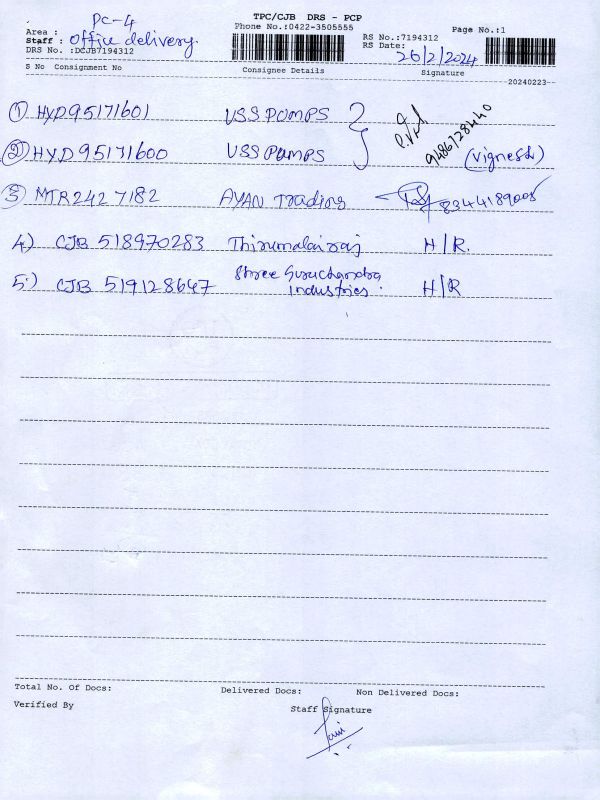 TPC/CJB DRS - PCP
PC-4
Phone No.:0422-3505555
Page No.:1
Area :
Staff : office delivery.
RS No.:7194312
DRS No. :DCJB7194312
RS Date: 26/2/2024
S No Consignment No Consignee Details Signature
20240223
① HYD95171601 USS PUMPS
9486728440
② HYD95171600 USS Pumps (Vignesh)
③ MTR2427182 AYAN Trading 8344189005
4) CJB 518970283 Thirumalairaj H/R.
5) CJB 519128647 Shree Guruchandra
Industries. H/R
Total No. Of Docs: Delivered Docs: Non Delivered Docs:
Verified By Staff Signature